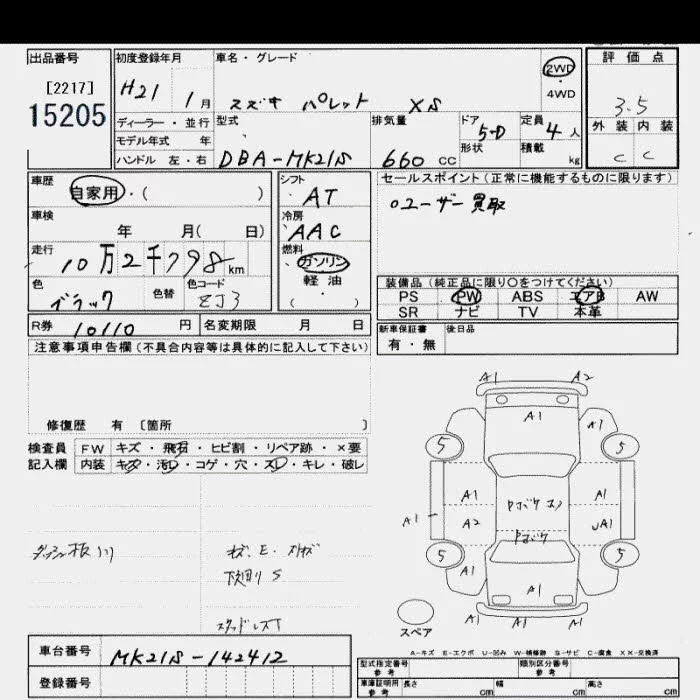 出品番号
[2217]
15205
初度登録年月
H21 1月
車名・グレード
スズキ パレット XS
2WD
・
4WD
評価点
3.5
外装 内装
C C
ディーラー・並行
モデル年式 年
ハンドル 左・右
型式
DBA-MK21S
排気量
660 CC
ドア
5D
形状
定員
4人
積載
kg
車歴
自家用・( )
車検
年 月( 日)
走行
10万2千798km
色
ブラック
色替
色コード
ZJ3
シフト
AT
冷房
AAC
燃料
ガソリン
軽油
( )
セールスポイント(正常に機能するものに限ります)
○ユーザー買取
装備品(純正品に限り○をつけてください)
PS PW ABS エアB AW
SR ナビ TV 本革
R券 10110円
名変期限 月 日
新車保証書
有・無
後日品
注意事項申告欄(不具合内容等は具体的に記入して下さい)
修復歴 有 [箇所 ]
検査員
記入欄
FW キズ・飛石・ヒビ割・リペア跡・×要
内装 キズ・汚レ・コゲ・穴・スレ・キレ・破レ
下回りS
A1 A2
A1
A1
5 5
A1 A1
A1 A2 UA1
5 5
A1 A1
A1 A1
スペア
A-キズ E-エクボ U-凹み W-補修跡 S-サビ C-腐食 XX-交換済
車台番号
MK21S-142412
登録番号
型式指定番号
参考
類別区分番号
参考
車庫証明用
参考
長さ cm 幅 cm 高さ cm